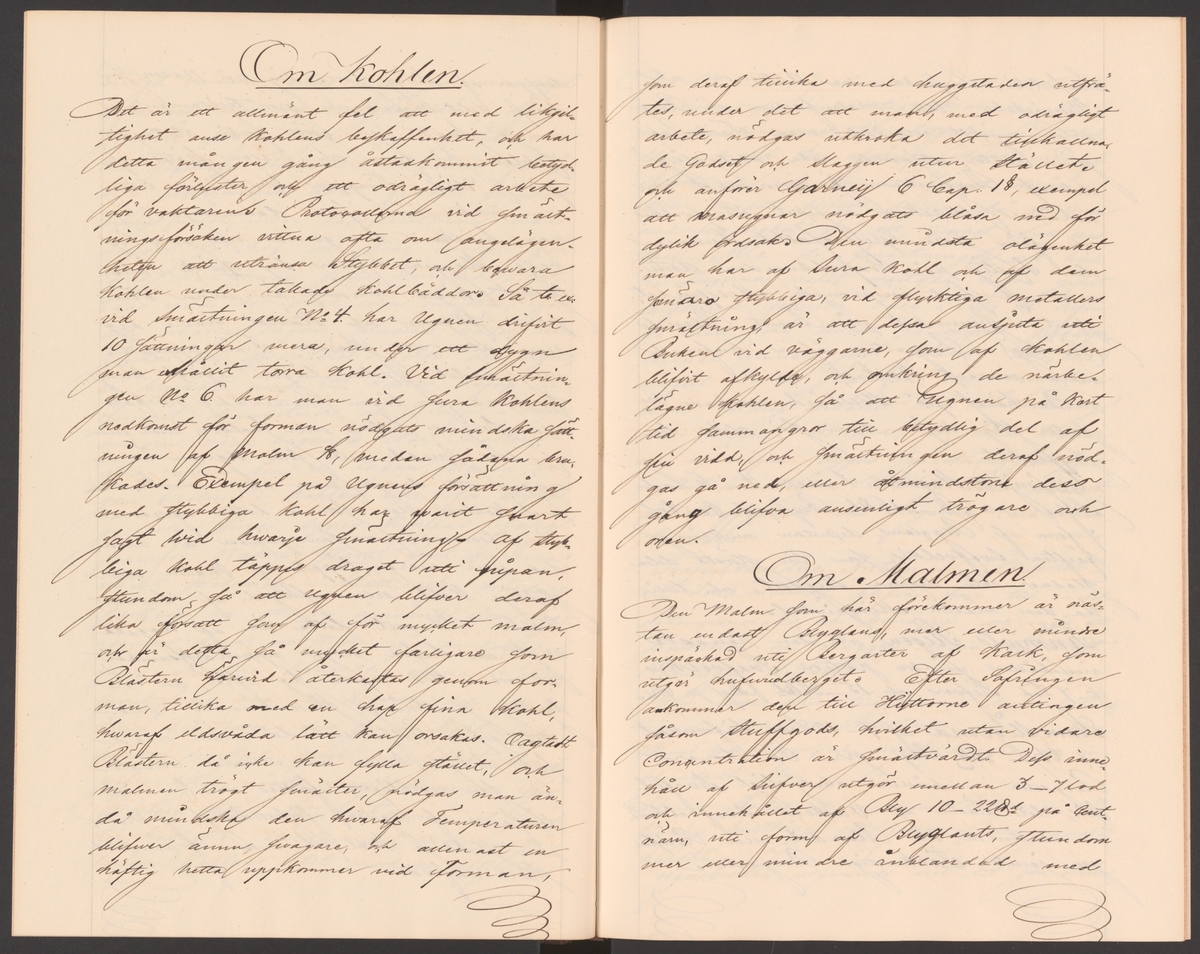 Om Kohlen.
Det är ett allmänt fel att med likgil-
tighet anse Kohlens beskaffenhet, och har
detta mången gång åstadkommit betyd-
liga förluster och ett odrägligt arbete
för vaktaren. Protocollerna vid Smält-
ningsförsöken vittna ofta om angelägen-
heten att utränsa Stybbet, och bewara
Kohlen under takade Kohlbäddor. Så t. ex.
vid Smältningen No 4. har Ugnen drifvit
10 Sättningar mera, under ett dygn
man erhållit torra Kohl. Vid Smältnin-
gen No 6 har man vid sura Kohlens
nedkomst för forman nödgats mindska Sätt-
ningen af Malm, medan sådana bru-
kades. Exempel på Ugnens försättning
med stybbiga Kohl har varit snart
sagt wid hwarje Smältning af styb-
biga Kohl täppes draget uti pipan,
stundom så att Ugnen blifver deraf
lika försatt som af för mycket malm,
och är detta så mycket farligare som
Blästern härvid återkastas genom for-
man, tillika med en hop fina Kohl,
hwaraf eldsvåda lätt kan orsakas. Oagtadt
Blästern då icke kan fylla stället, och
malmen trögt smälter, nödgas man än-
då mindska den hwaraf Temperaturen
blifwer ännu swagare, och allenast en
häftig hetta uppkommer vid Forman,
som deraf tillika med huggstaden utfrä-
tes, under det att man, med odrägligt
arbete, nödgas utkroka det tillkallna-
de Godset och Slaggen utur Stället.
och anförer Garney 6 Cap. 18, exempel
att masugnar nödgats blåsa ned för
dylik ordsak. Den mindsta olägenhet
man har af Sura Kohl och af dem
som äro stybbiga, vid flycktiga metallers
smältning, är att dessa ansjuta uti
Buken vid väggarne, som af Kohlen
blifvit afkylde, och omkring de närbe-
lägne Kohlen, så att Ugnen på kort
tid sammangror till betydlig del af
sin vidd, och Smältningen deraf nöd-
gas gå ned, eller åtminstone dess
gång blifva ansenligt trögare och
oren.
Om Malmen.
Den Malm som här förekommer är näs-
tan endast Blyglans, mer eller mindre
insprängd uti Bergarter af Kalk, som
utgör hufvudberget. Efter Sofringen
ankommer den till Hyttorne antingen
såsom Stuffgods, hvilket utan vidare
Concentration är smältvärdt. Dess inne-
håll af Silfver utgör emellan 3–7 lod
och innehållet af Bly 10–22 på Cent-
närn, uti form af Blyglants, stundom
mer eller mindre inblandad med